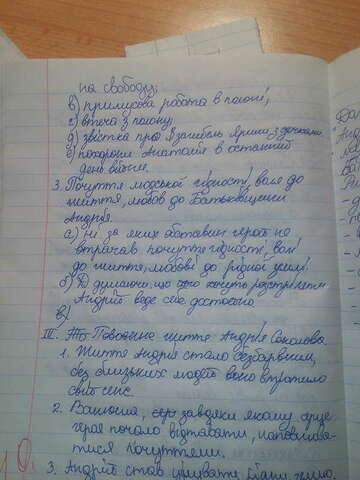 на свободу;
в) примусова робота в полоні;
г) втеча з полону;
д) звістка про загибель Ірини з дочками
е) похорони Анатолія в останній
день війни.
3. Почуття людської гідності, воля до
життя, любов до Батьківщини
Андрія.
а) ні за яких обставин герой не
втрачав почуття гідності, волі
до життя, любові до рідної землі.
б) Думаючи, що його хочуть розстріляти
Андрій веде себе достойно.
в)
III. Повоєнне життя Андрія Соколова.
1. Життя Андрія стало безбарвним,
без близьких людей воно втратило
свій сенс.
2. Ванюша, завдяки якому серце
героя почало відтавати, наповнюва-
тися почуттями.
3. Андрій став цінувати рідну землю,